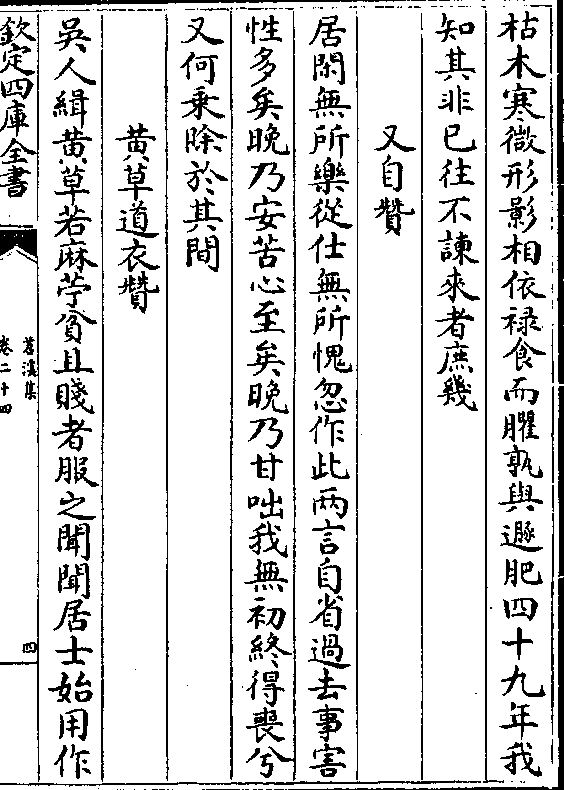 枯木寒微形影相依禄食而臞孰與遯肥四十九年我
知其非已往不諫來者庶幾
又自贊
居閑無所樂從仕無所愧忽作此兩言自省過去事害
性多矣晚乃安苦心至矣晚乃甘咄我無初終得喪兮
又何乘除於其間
黄草道衣贊
吳人緝黄草若麻苧貧且賤者服之聞聞居士始用作
欽定四庫全書
苕溪集
卷二十四
四